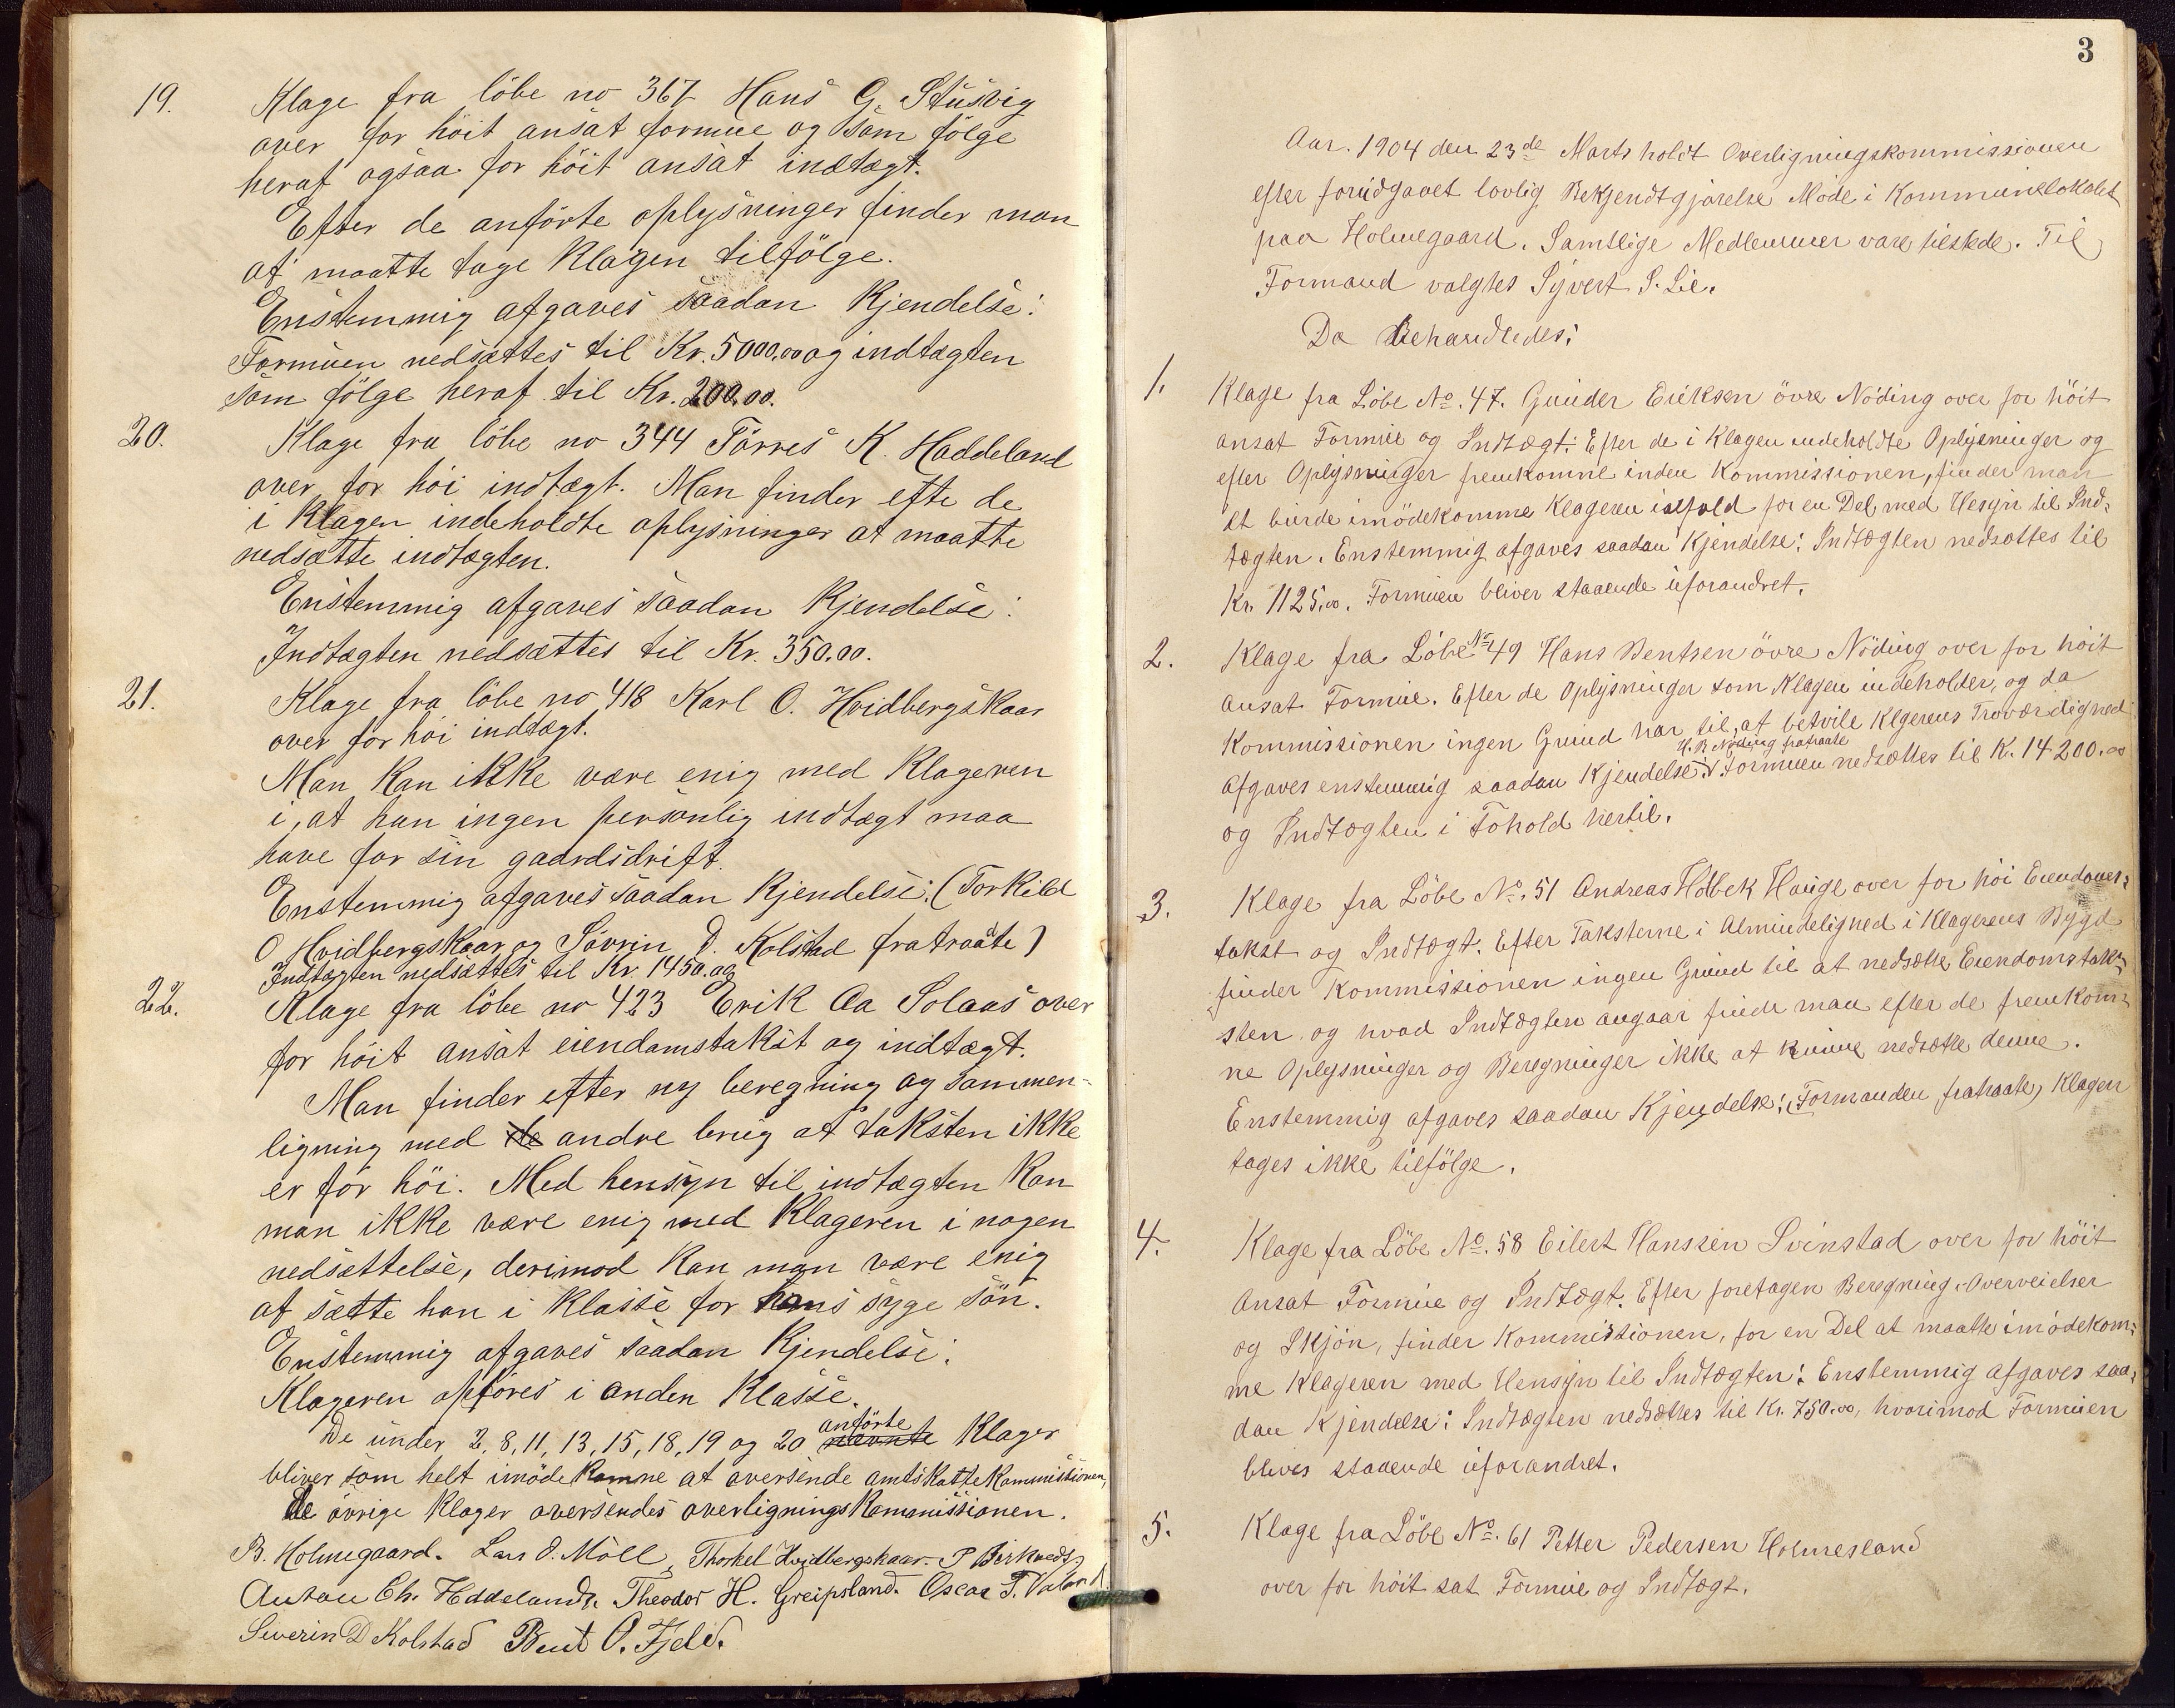 19. Klage fra löbe no 367 Hans G. Stusvig
over for höit ansat formue og som fölge
heraf ogsaa for höit ansat indtægt.
Efter de anförte oplysninger finder man
at maatte tage Klagen tilfölge.
Enstemmig afgaves saadan Kjendelse:
Formuen nedsættes til Kr. 5000,00 og indtægten
som fölge heraf til Kr. 200,00.
20. Klage fra löbe no 344 Törres K. Haddeland
over for höi indtægt. Man finder efte de
i Klagen indeholdte oplysninger at maatte
nedsætte indtægten.
Enstemmig afgaves saadan Kjendelse:
Indtægten nedsættes til Kr. 350,00.
21. Klage fra löbe no 418 Karl O. Hvidbergskaar
over for höi indtægt.
Man Kan ikke være enig med Klageren
i, at han ingen personlig indtægt maa
have for sin gaardsdrift.
Enstemmig afgaves saadan Kjendelse: (Torkild
O Hvidbergskaar og Sövrin D. Kolstad fratraate)
Indtægten nedsættes til Kr. 1450.00
22. Klage fra löbe no 423 Erik Aa Solaas over
for höit ansat eiendomstakst og indtægt.
Man finder efter ny beregning og sammen-
ligning med de andre brug at taksten ikke
er for höi. Med hensyn til indtægten Kan
man ikke være enig med Klageren i nogen
nedsættelse, derimod Kan man være enig
at sætte han i Klasse for hans syge sön.
Enstemmig afgaves saadan Kjendelse:
Klageren opföres i anden Klasse.
De under 2, 8, 11, 13, 15, 18, 19 og 20 nævnte anförte Klager
bliver som helt imödekomne at oversende amtskattekommissionen,
de övrige Klager oversendes overligningskommissionen.
B. Holmegaard. Lars O. Möll, Thorkel Hvidbergskaar. P Birkneds
Anton Ch. Hddeland. Theodor H. Greipsland. Oscar T. Valand
Severin D Kolstad Bent O. Fjeld.
3
Aar. 1904 den 23de Marts holdt Overligningskommissionen
efter forudgaaet lovlig Bekjendtgjörelse Möde i Kommunelokalet
paa Holmegaard. Samtlige Medlemmer vare tilstede. Til
Formand valgtes Syvert S. Lie.
Da Behandledes:
1. Klage fra Löbe No. 47. Gunder Eriksen övre Nöding over for höit
ansat Formue og Indtægt: Efter de i Klagen indeholdte Oplysninger og
efter Oplysninger fremkomne inden Kommissionen, finder man
at burde imödekomme Klageren ialfald for en Del, med Hesyn til Ind-
tægten. Enstemmig afgaves saadan Kjendelse: Indtægten nedsættes til
Kr. 1125,00. Formuen bliver staaende uforandret.
2. Klage fra Löbe No 49 Hans Bentsen övre Nöding over for höit
ansat Formue. Efter de Oplysninger som Klagen indeholder, og da
Kommissionen ingen Grund har til, at betvile Klgerens Troværdighed
H. B Nöding fratraate
afgaves enstemmig saadan Kjendelse: Formuen nedsættes til K. 14200.00
og Indtægten i Fohold hertil.
3. Klage fra Löbe No. 51 Andreas Holbek Hauge over for höi Eiendoms-
takst og Indtægt. Efter Taksterne i Almindelighed i Klagerens Bygd
finder Kommissionen ingen Grund til at nedsætte Eiendomstak-
sten og hvad Indtægten angaar finde man efter de fremkom-
ne Oplysninger og Beregninger ikke at kunne nedsætte denne.
Enstemmig afgaves saadan Kjendelse: (Formanden fratraate) Klagen
tages ikke tilfölge.
4. Klage fra Löbe No. 58 Eilert Hanssen Svinstad over for höit
Ansat Formue og Indtægt. Efter foretagen Beregning Overveielser
og Skjön, finder Kommisstionen, for en Del at maatte imödekom-
me Klageren med Hensyn til Indtægten: Enstemmig afgaves saa-
dan Kjendelse: Indtægten nedsættes til Kr. 750.00, hvorimod Formuen
blives staaende uforandret.
5. Klage fra Löbe No. 61 Petter Pedersen Holmesland
over for höit sat Formue og Indtægt.